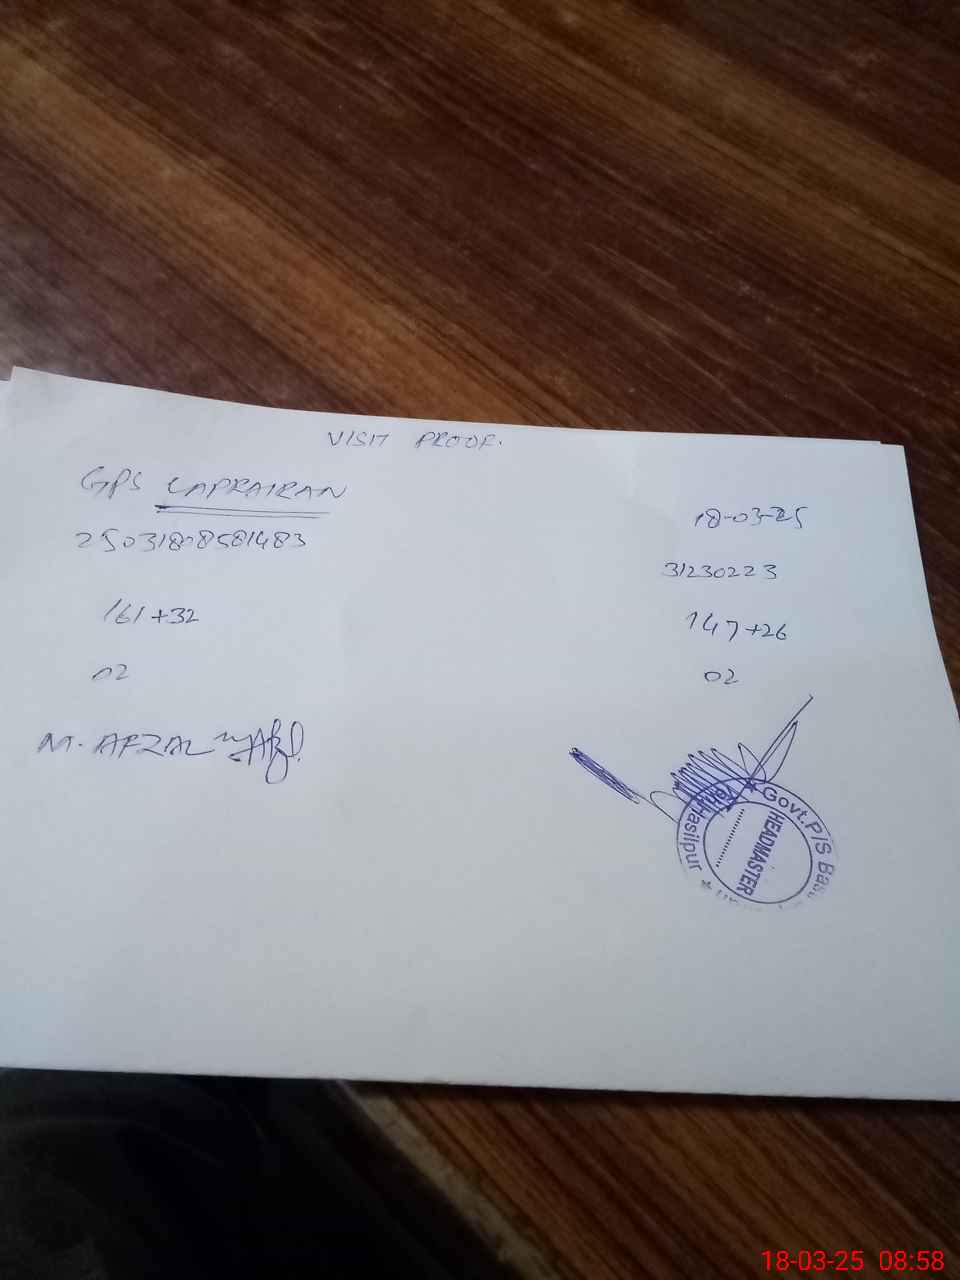 VISIT PROOF.
GPS LAPRAIRAN
18-03-25
25031808581483
31230223
161+32
147+26
02
02
M. AFZAL
Govt.P/S
HEADMASTER
Hasilpur
18-03-25 08:58